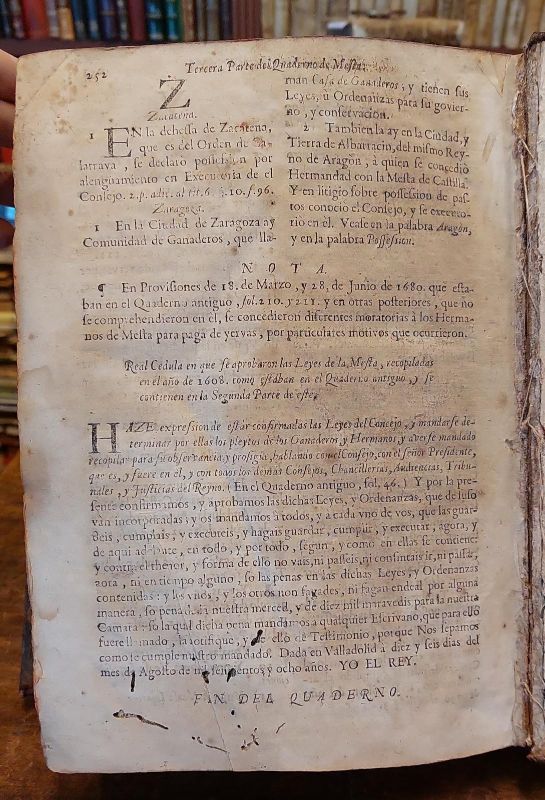 252
Tercera Parte del Quaderno de Mesta.
Z
Zacatena.
1 EN la dehessa de Zacatena,
que es del Orden de Ca-
latrava, se declarò possession por
alenguamiento en Executoria de el
Consejo. 2.p. adic. al tit.6. §.10. f.96.
Zaragoza.
1 En la Ciudad de Zaragoza ay
Comunidad de Ganaderos, que lla-
man Casa de Ganaderos, y tienen sus
Leyes, ù Ordenanzas para su govier-
no, y conservacion.
2 Tambien la ay en la Ciudad, y
Tierra de Albarracin, del mismo Rey-
no de Aragòn, à quien se concediò
Hermandad con la Mesta de Castilla.
Y en litigio sobre possession de pas-
tos conociò el Consejo, y se executo-
riò en èl. Vease en la palabra Aragòn,
y en la palabra Possession.
NOTA.
¶ En Provisiones de 18. de Marzo, y 28. de Junio de 1680. que esta-
ban en el Quaderno antiguo, fol.210. y 211. y en otras posteriores, que no
se comprehendieron en èl, se concedieron diferentes moratorias à los Herma-
nos de Mesta para paga de yervas, por particulares motivos que ocurrieron.
Real Cedula en que se aprobaron las Leyes de la Mesta, recopiladas
en el año de 1608. como estaban en el Quaderno antiguo, y se
contienen en la Segunda Parte de este.
HAZE expression de estàr confirmadas las Leyes del Concejo, y mandarse de-
terminar por ellas los pleytos de los Ganaderos, y Hermanos, y averse mandado
recopilar para su observancia, y prosigue, hablando con el Consejo, con el señor Presidente,
que es, y fuere en èl, y con todos los demàs Consejos, Chancillerias, Audiencias, Tribu-
nales, y Justicias del Reyno. (En el Quaderno antiguo, fol. 46.) Y por la pre-
sente confirmamos, y aprobamos las dichas Leyes, y Ordenanzas, que de suso
vàn incorporadas; y os mandamos à todos, y à cada vno de vos, que las guar-
deis, cumplais, y executeis, y hagais guardar, cumplir, y executar, agora, y
de aqui adelante, en todo, y por todo, segun, y como en ellas se contiene;
y contra el thenor, y forma de ello no vais, ni passeis, ni consintais ir, ni passar,
aora, ni en tiempo alguno, so las penas en las dichas Leyes, y Ordenanzas
contenidas: y los vnos, y los otros non fagades, ni fagan endeal por alguna
manera, so pena de la nuestra merced, y de diez mil maravedis para la nuestra
Camara: so la qual dicha pena mandamos à qualquier Escrivano, que para ello
fuere llamado, la notifique, y de ello dè Testimonio, porque Nos sepamos
como se cumple nuestro mandado. Dada en Valladolid à diez y seis dias del
mes de Agosto de mil seiscientos y ocho años. YO EL REY.
FIN DEL QUADERNO.